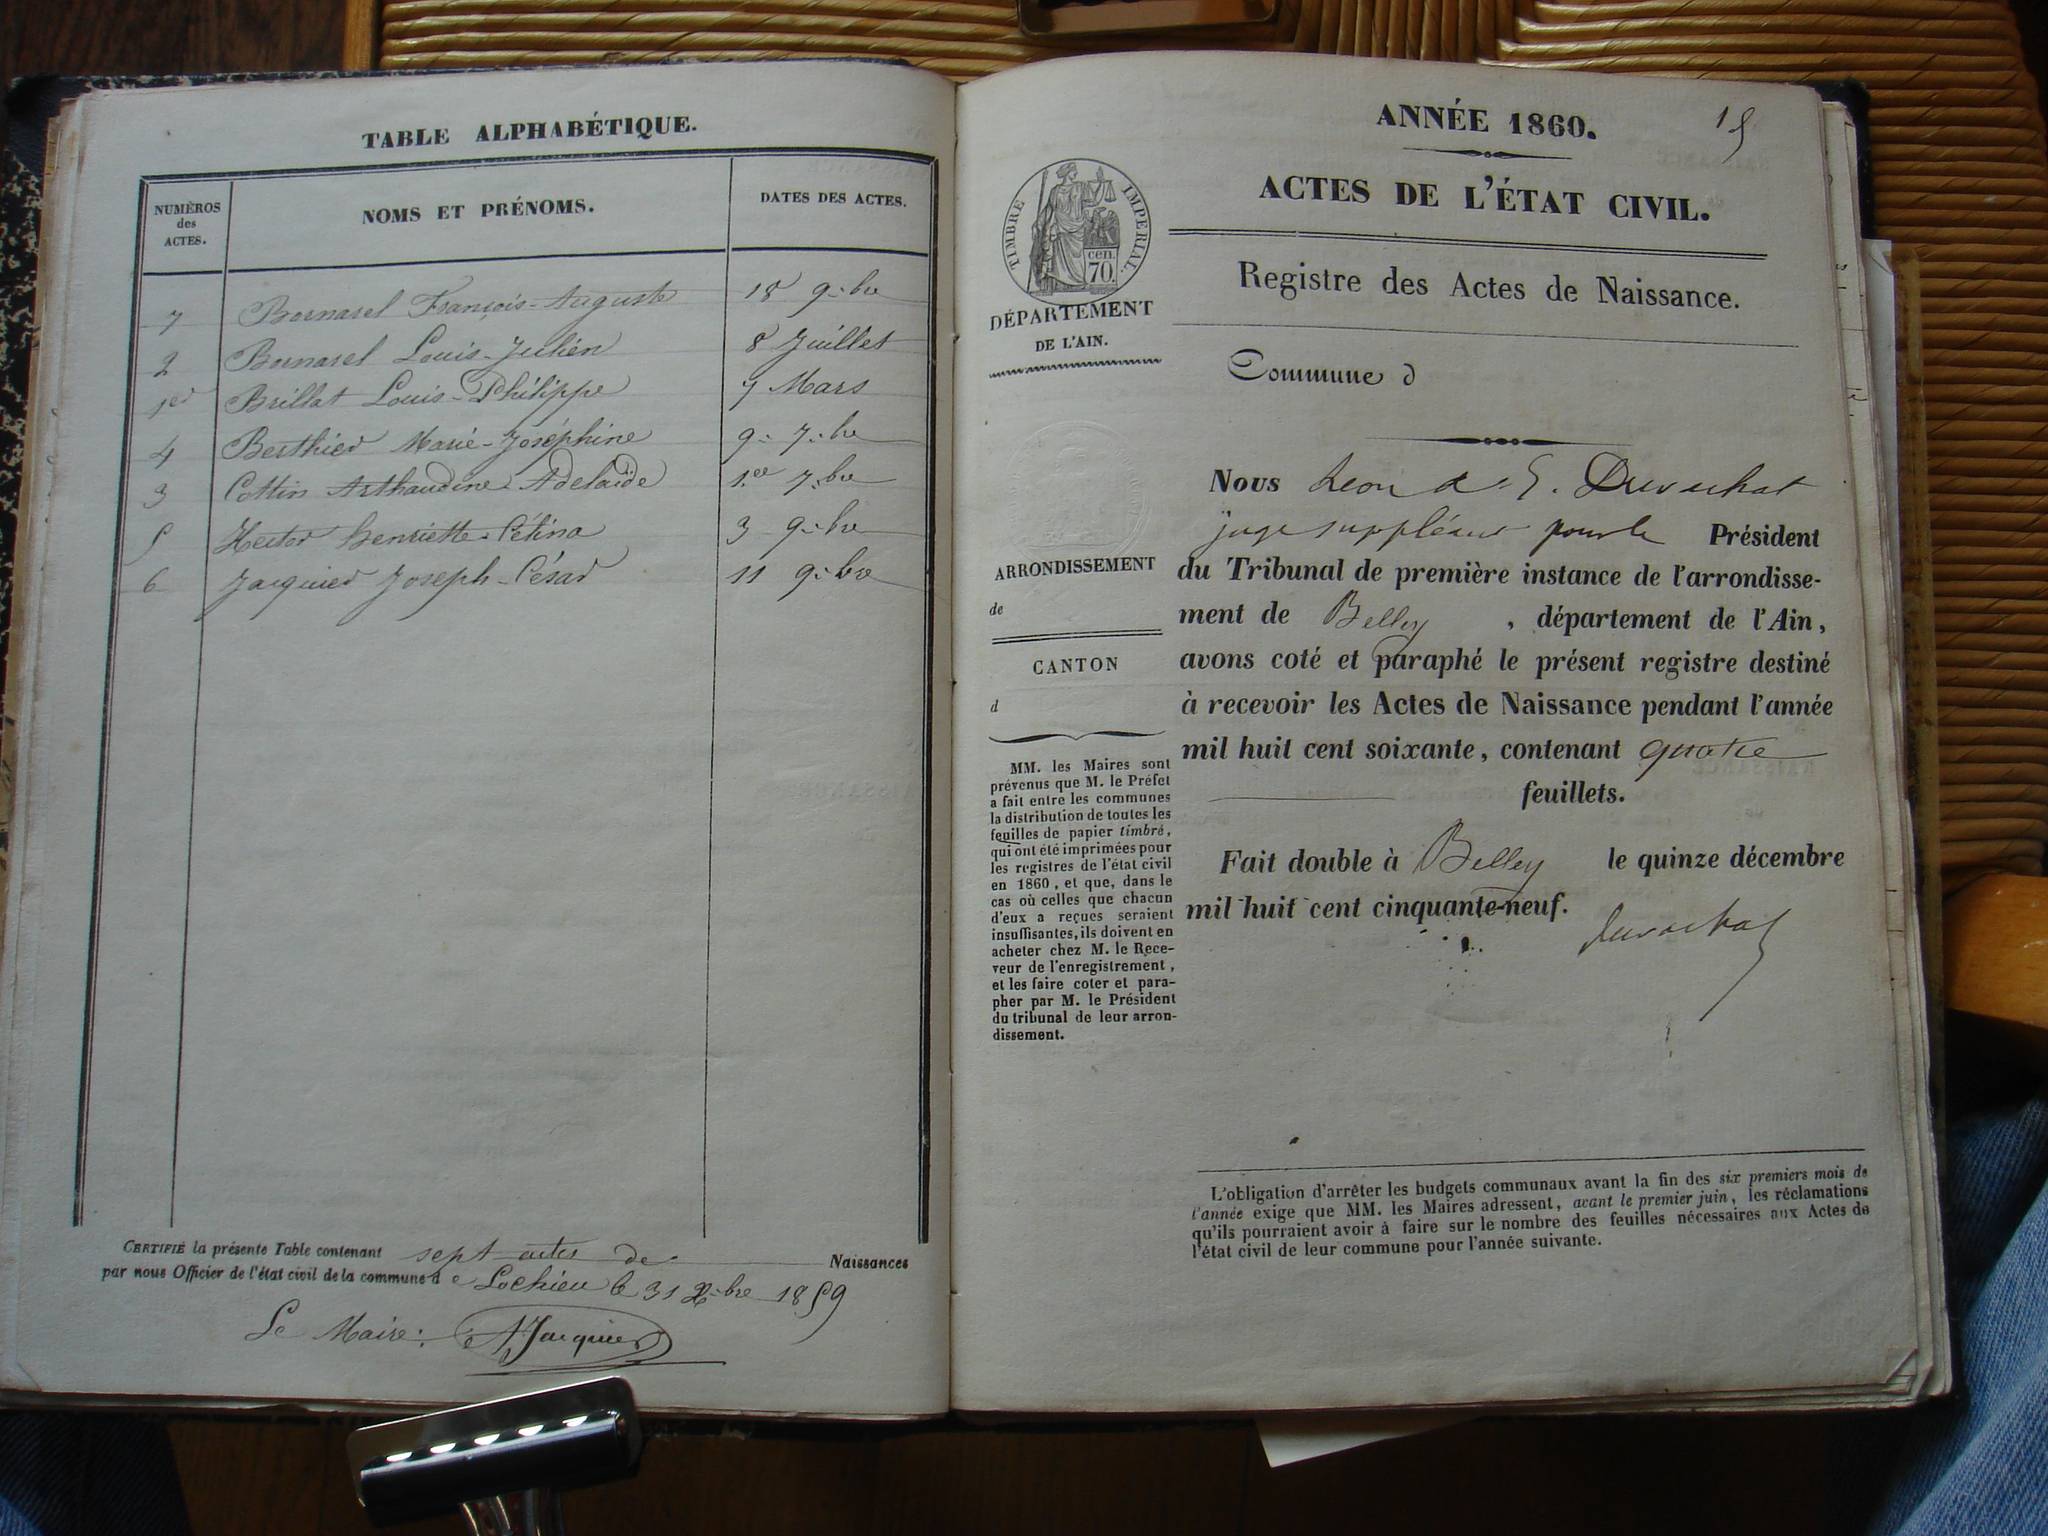 TABLE ALPHABÉTIQUE.
NUMÉROS des ACTES.
NOMS ET PRÉNOMS.
DATES DES ACTES.
7 Bornarel François-Auguste 18 9.bre
2 Bornarel Louis-Julien 8 Juillet
1er Brillat Louis-Philippe 7 Mars
4 Berthier Marie-Joséphine 9. 7.bre
3 Cottin Arthaudine-Adelaïde 1.er 7.bre
5 Hector Henriette-Célina 3 9.bre
6 Jacquier Joseph-César 11 9.bre
CERTIFIÉ la présente Table contenant sept actes de Naissances
par nous Officier de l'état civil de la commune d e Lochieu le 31 X.bre 1859
Le Maire: Jacquier
15
ANNÉE 1860.
ACTES DE L'ÉTAT CIVIL.
TIMBRE IMPÉRIAL
cen.
70.
DÉPARTEMENT
DE L'AIN.
Registre des Actes de Naissance.
Commune d
ARRONDISSEMENT
de
CANTON
d
MM. les Maires sont
prévenus que M. le Préfet
a fait entre les communes
la distribution de toutes les
feuilles de papier timbré,
qui ont été imprimées pour
les registres de l'état civil
en 1860, et que, dans le
cas où celles que chacun
d'eux a reçues seraient
insuffisantes, ils doivent en
acheter chez M. le Rece-
veur de l'enregistrement,
et les faire coter et para-
pher par M. le Président
du tribunal de leur arron-
dissement.
Nous Léon Duvachat
juge suppléant pour le Président
du Tribunal de première instance de l'arrondisse-
ment de Belley, département de l'Ain,
avons coté et paraphé le présent registre destiné
à recevoir les Actes de Naissance pendant l'année
mil huit cent soixante, contenant quatre
feuillets.
Fait double à Belley le quinze décembre
mil huit cent cinquante-neuf.
Duvachat
L'obligation d'arrêter les budgets communaux avant la fin des six premiers mois de
l'année exige que MM. les Maires adressent, avant le premier juin, les réclamations
qu'ils pourraient avoir à faire sur le nombre des feuilles nécessaires aux Actes de
l'état civil de leur commune pour l'année suivante.